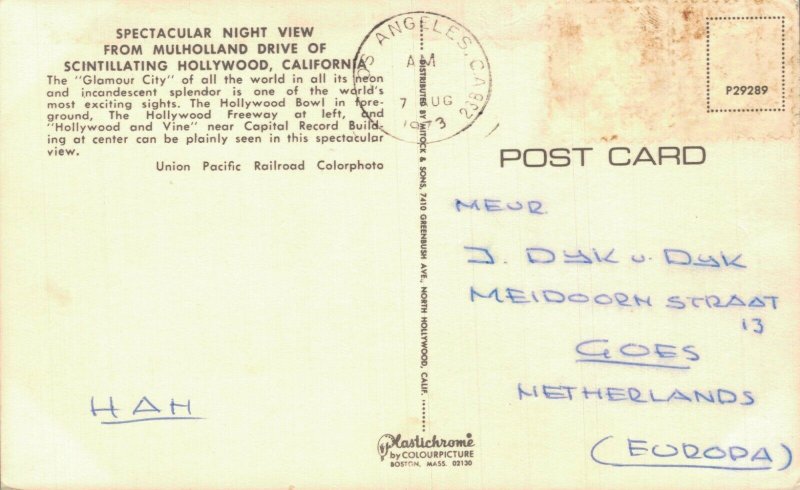 SPECTACULAR NIGHT VIEW
FROM MULHOLLAND DRIVE OF
SCINTILLATING HOLLYWOOD, CALIFORNIA
The "Glamour City" of all the world in all its neon
and incandescent splendor is one of the world's
most exciting sights. The Hollywood Bowl in fore-
ground, The Hollywood Freeway at left, and
"Hollywood and Vine" near Capital Record Build-
ing at center can be plainly seen in this spectacular
view.
Union Pacific Railroad Colorphoto
LOS ANGELES, CA
AM
7 AUG
1973
DISTRIBUTED BY MITOCK & SONS, 7410 GREENBUSH AVE., NORTH HOLLYWOOD, CALIF.
P29289
POST CARD
MEUR.
J. DYK v. DYK
MEIDOORN STRAAT
13
GOES
NETHERLANDS
(EUROPA)
HAH
Plastichrome
by COLOURPICTURE
BOSTON, MASS. 02130